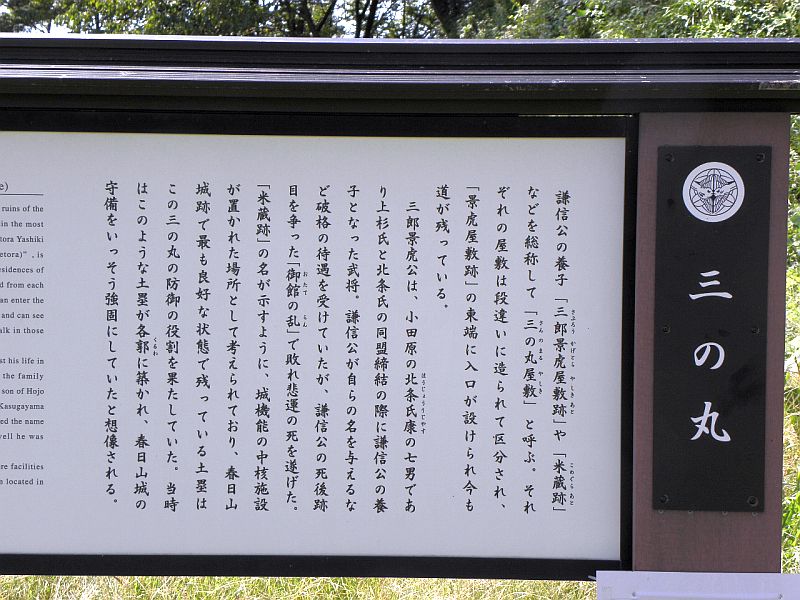 三の丸
謙信公の養子「三郎景虎屋敷跡」や「米蔵跡」
などを総称して「三の丸屋敷」と呼ぶ。それ
ぞれの屋敷は段違いに造られて区分され、
「景虎屋敷跡」の東端に入口が設けられ今も
道が残っている。
三郎景虎公は、小田原の北条氏康の七男であ
り上杉氏と北条氏の同盟締結の際に謙信公の養
子となった武将。謙信公が自らの名を与えるな
ど破格の待遇を受けていたが、謙信公の死後跡
目を争った「御館の乱」で敗れ悲運の死を遂げた。
「米蔵跡」の名が示すように、城機能の中核施設
が置かれた場所として考えられており、春日山
城跡で最も良好な状態で残っている土塁は
この三の丸の防御の役割を果たしていた。当時
はこのような土塁が各郭に築かれ、春日山城の
守備をいっそう強固にしていたと想像される。
e)
ruins of the
in the most
tora Yashiki
etora)", is
esidences of
d from each
an enter the
and can see
alk in those
st his life in
the family
son of Hojo
Kasugayama
ed the name
well he was
re facilities
located in